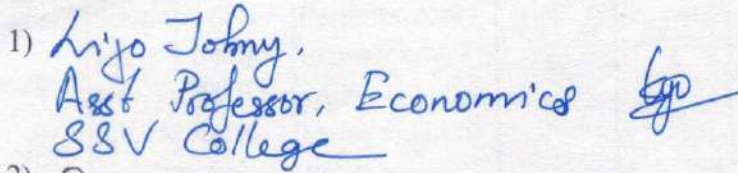 1) Lijo Johny.
Asst Professor, Economics
SSV College
2)